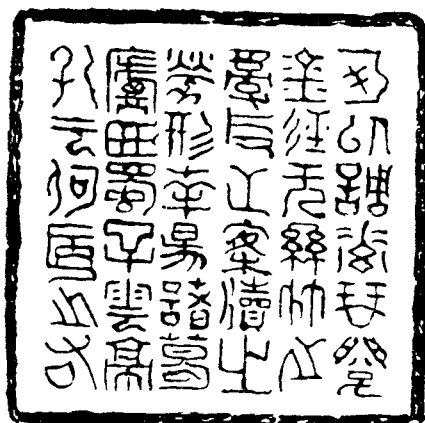 可以調素琴閱
金經无絲竹之
亂耳亡案牘之
勞形南昜諸葛
廬西蜀子雲亭
孔云何陋之有